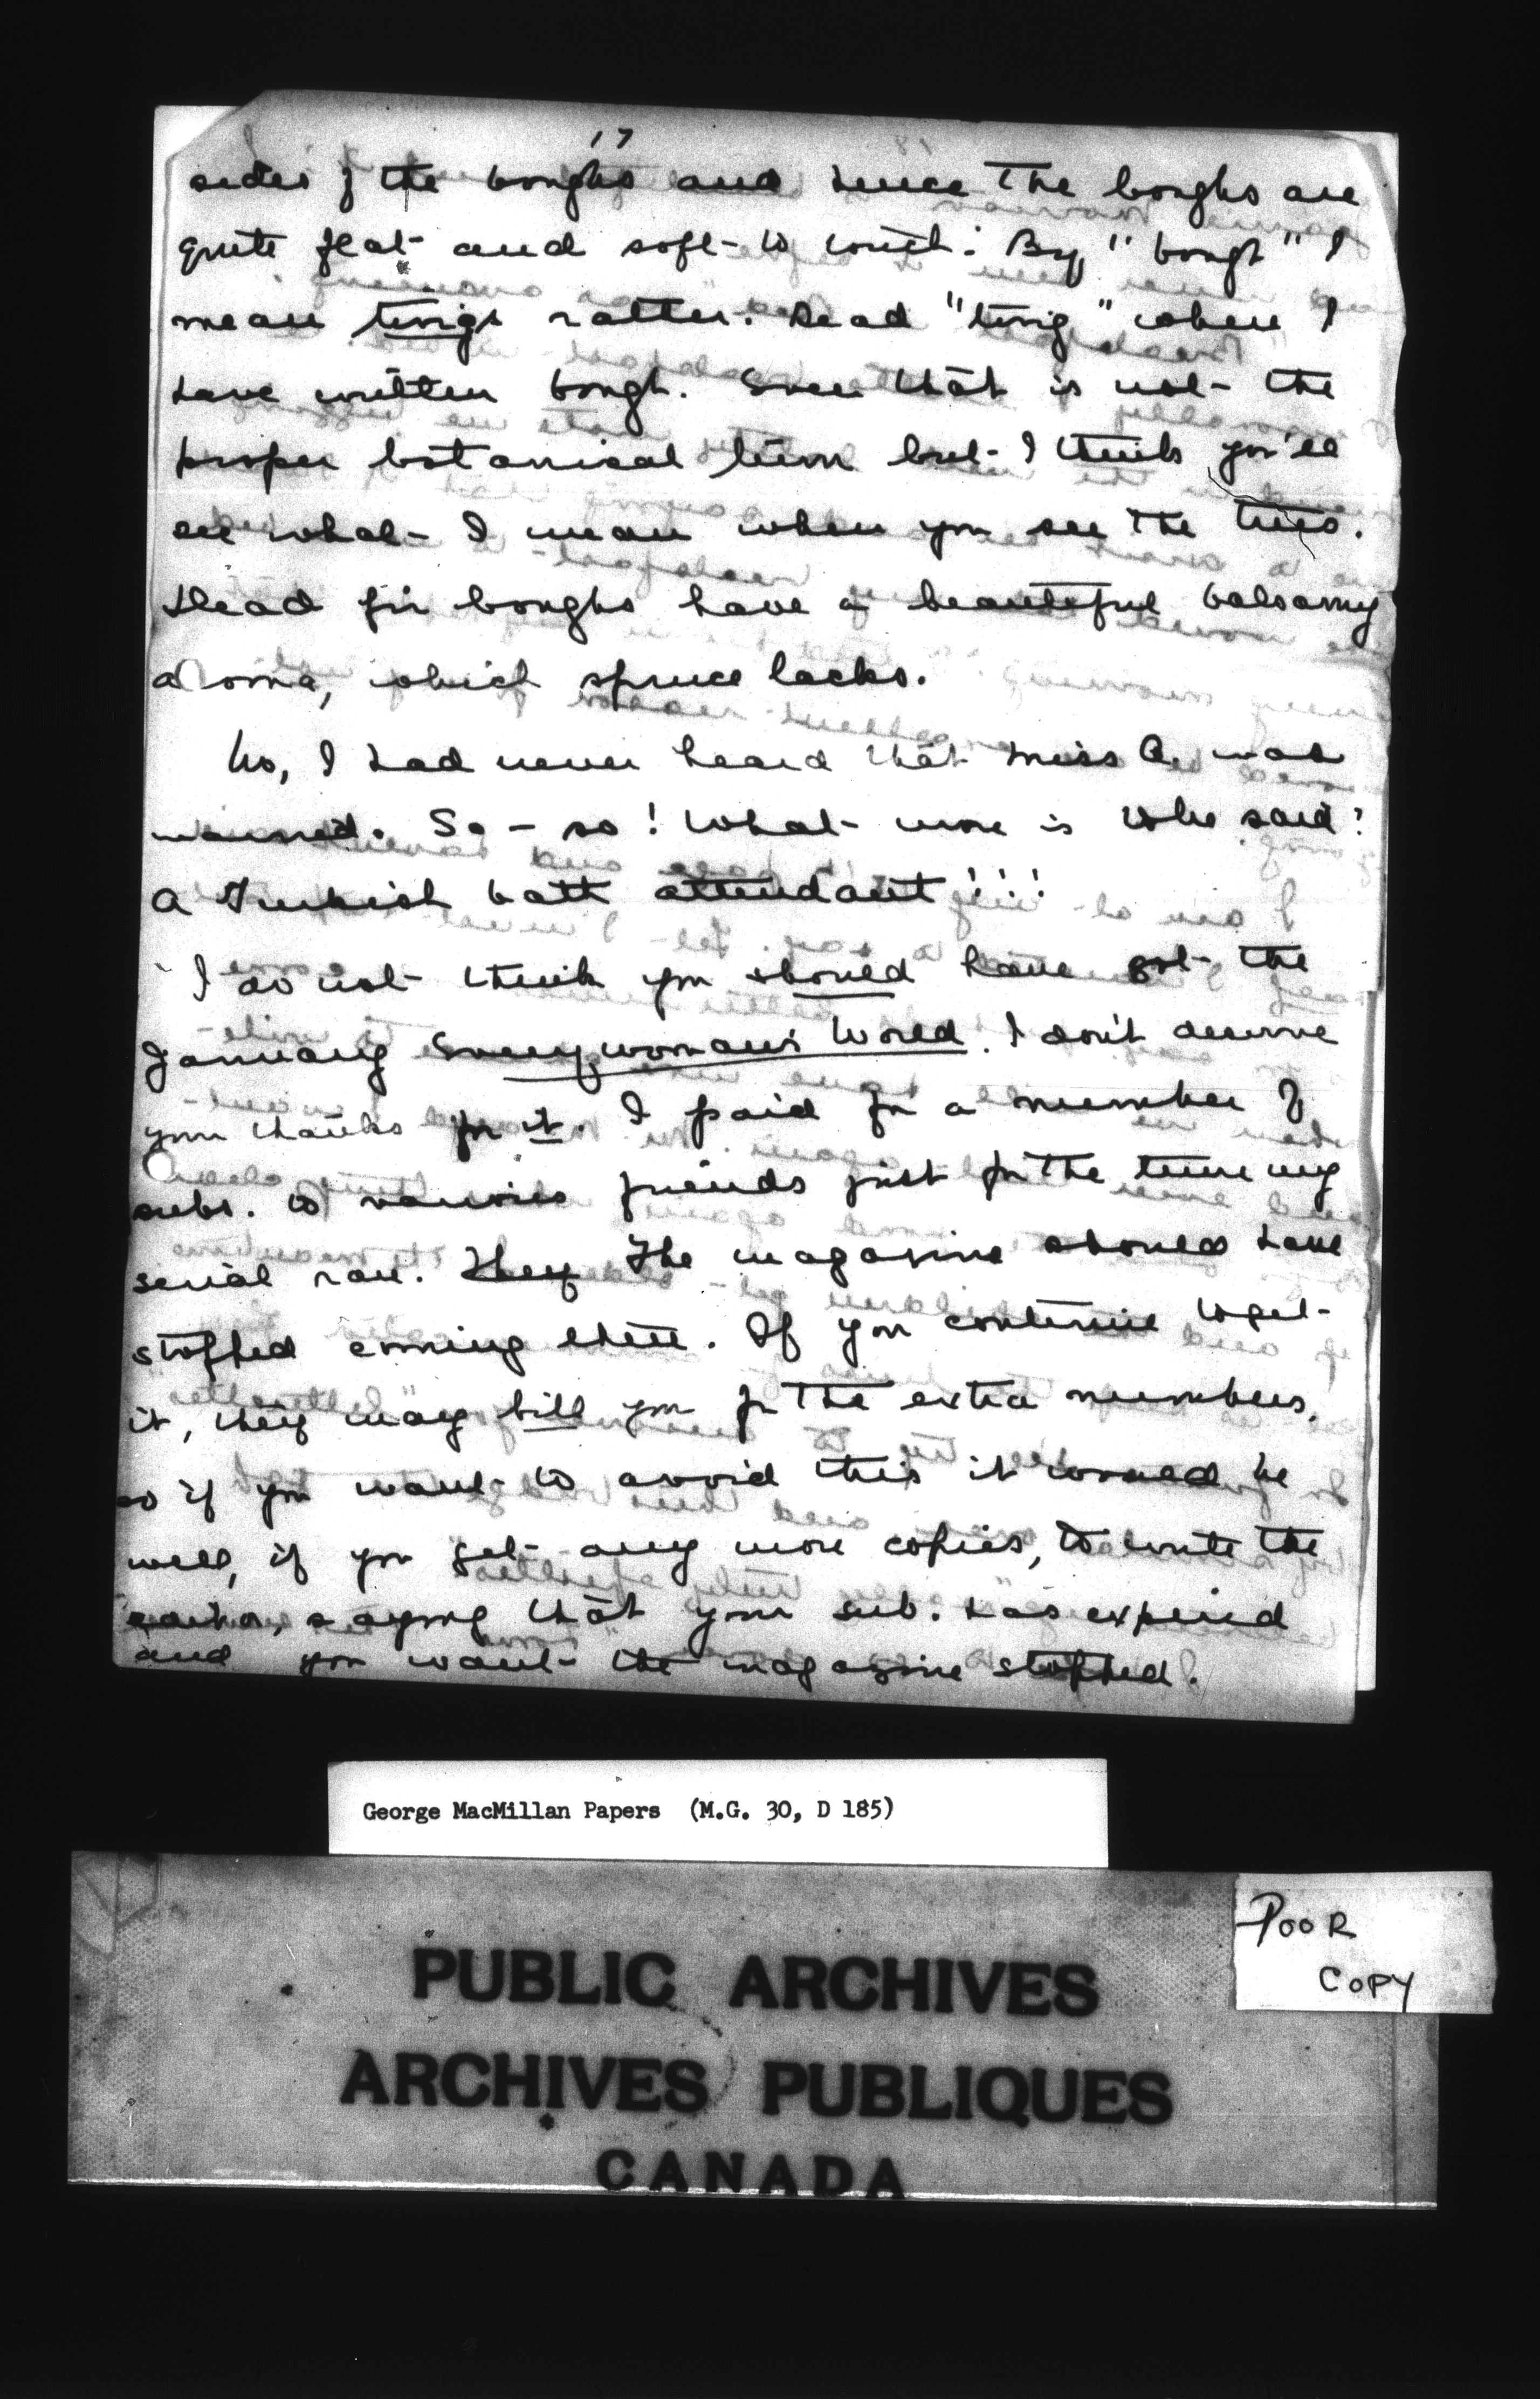 17
sides of the boughs and hence the boughs are
quite flat and soft to touch. By "bough" I
mean twigs rather. Read "twig" where I
have written bough. Even that is not the
proper botanical term but I think you'll
see what I mean when you see the trees.
Dead fir boughs have a beautiful balsamy
aroma, which spruce lacks.
No, I had never heard that Miss A. was
married. So - so! What more is to be said?
A Turkish bath attendant!!!
I do not think you should have got the
January Everywoman's World. I don't deserve
your thanks for it. I paid for a number of
subs. to various friends just for the time my
serial ran. They The magazine should have
stopped coming then. If you continue to get
it, they may bill you for the extra numbers,
so if you want to avoid this it would be
well, if you get any more copies, to write the
editor, saying that your sub. has expired
and you want the magazine stopped.
George MacMillan Papers (M.G. 30, D 185)
POOR
COPY
PUBLIC ARCHIVES
ARCHIVES PUBLIQUES
CANADA